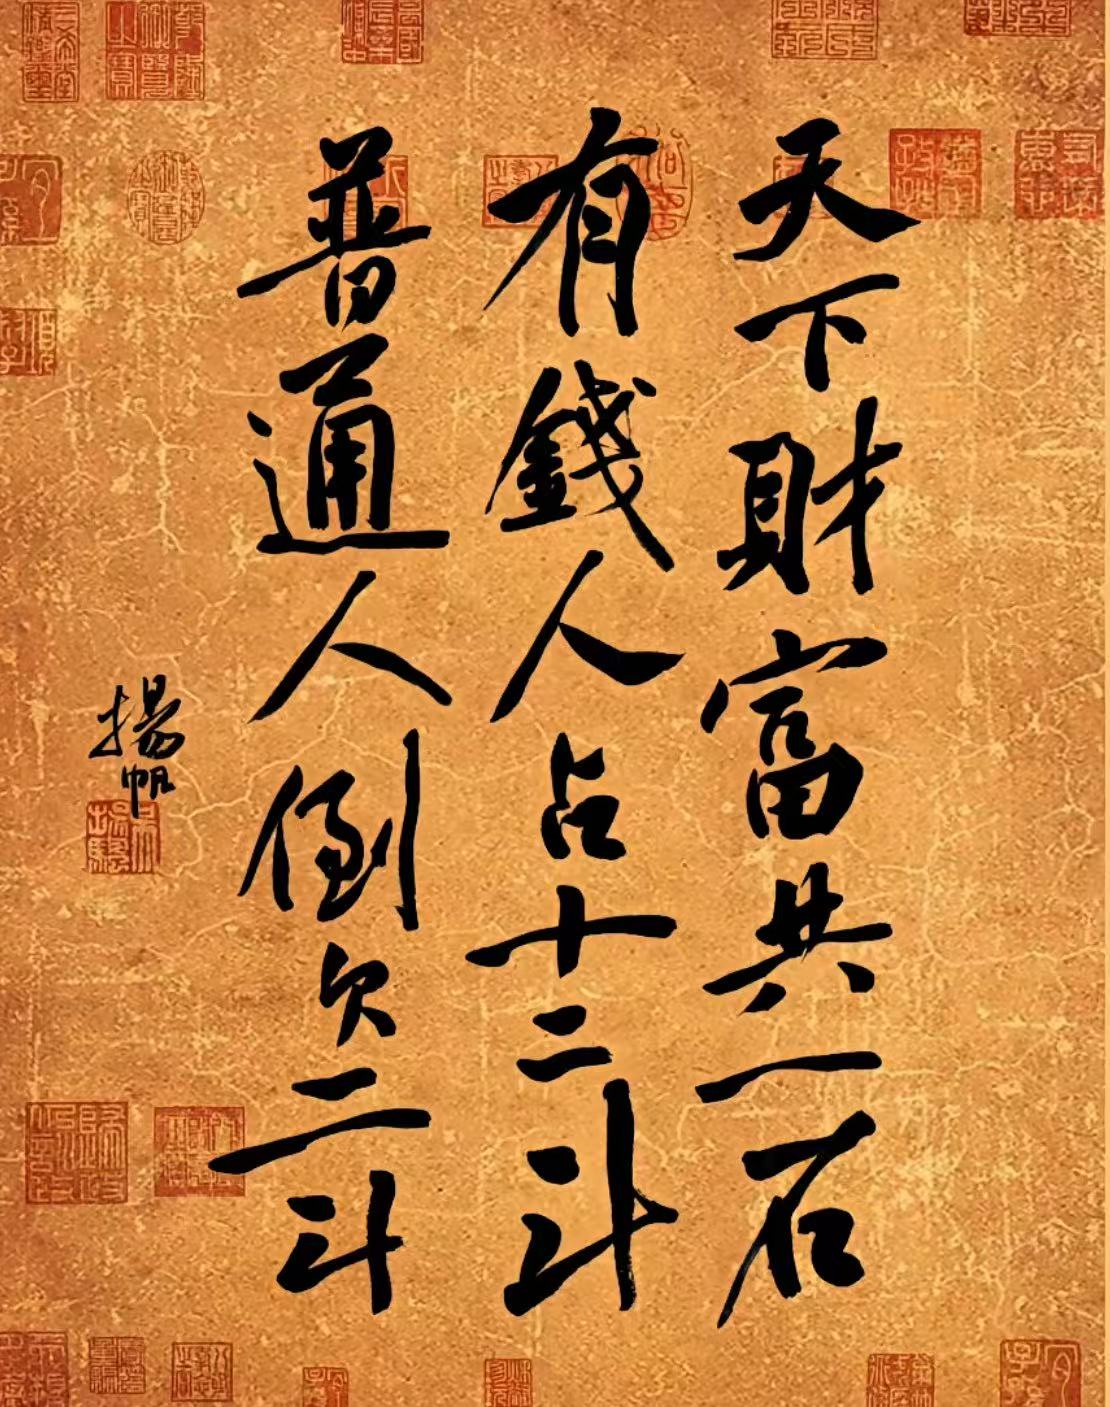 天下財富共一石
有錢人占十二斗
普通人倒欠二斗
揚帆